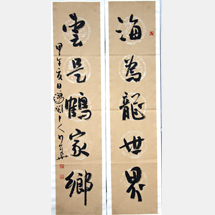 海為龍世界
雲是鶴家鄉
甲午夏日